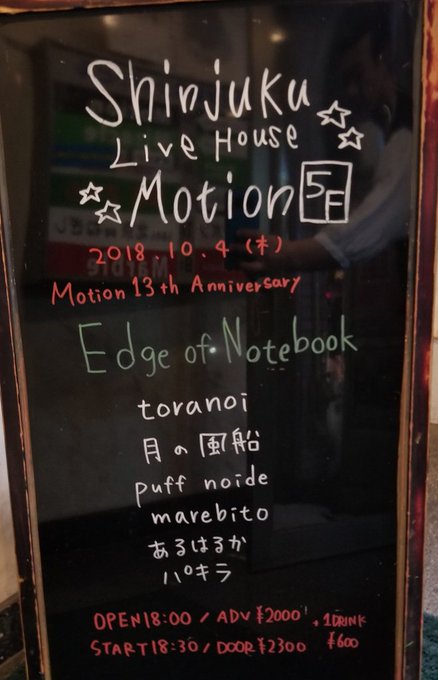 Shinjuku
Live House
Motion 5F
2018.10.4 (木)
Motion 13th Anniversary
Edge of Notebook
toranoi
月の風船
puff noide
marebito
あるはるか
パキラ
OPEN18:00 / ADV ¥2000 + 1DRINK
START18:30 / DOOR ¥2300 ¥600